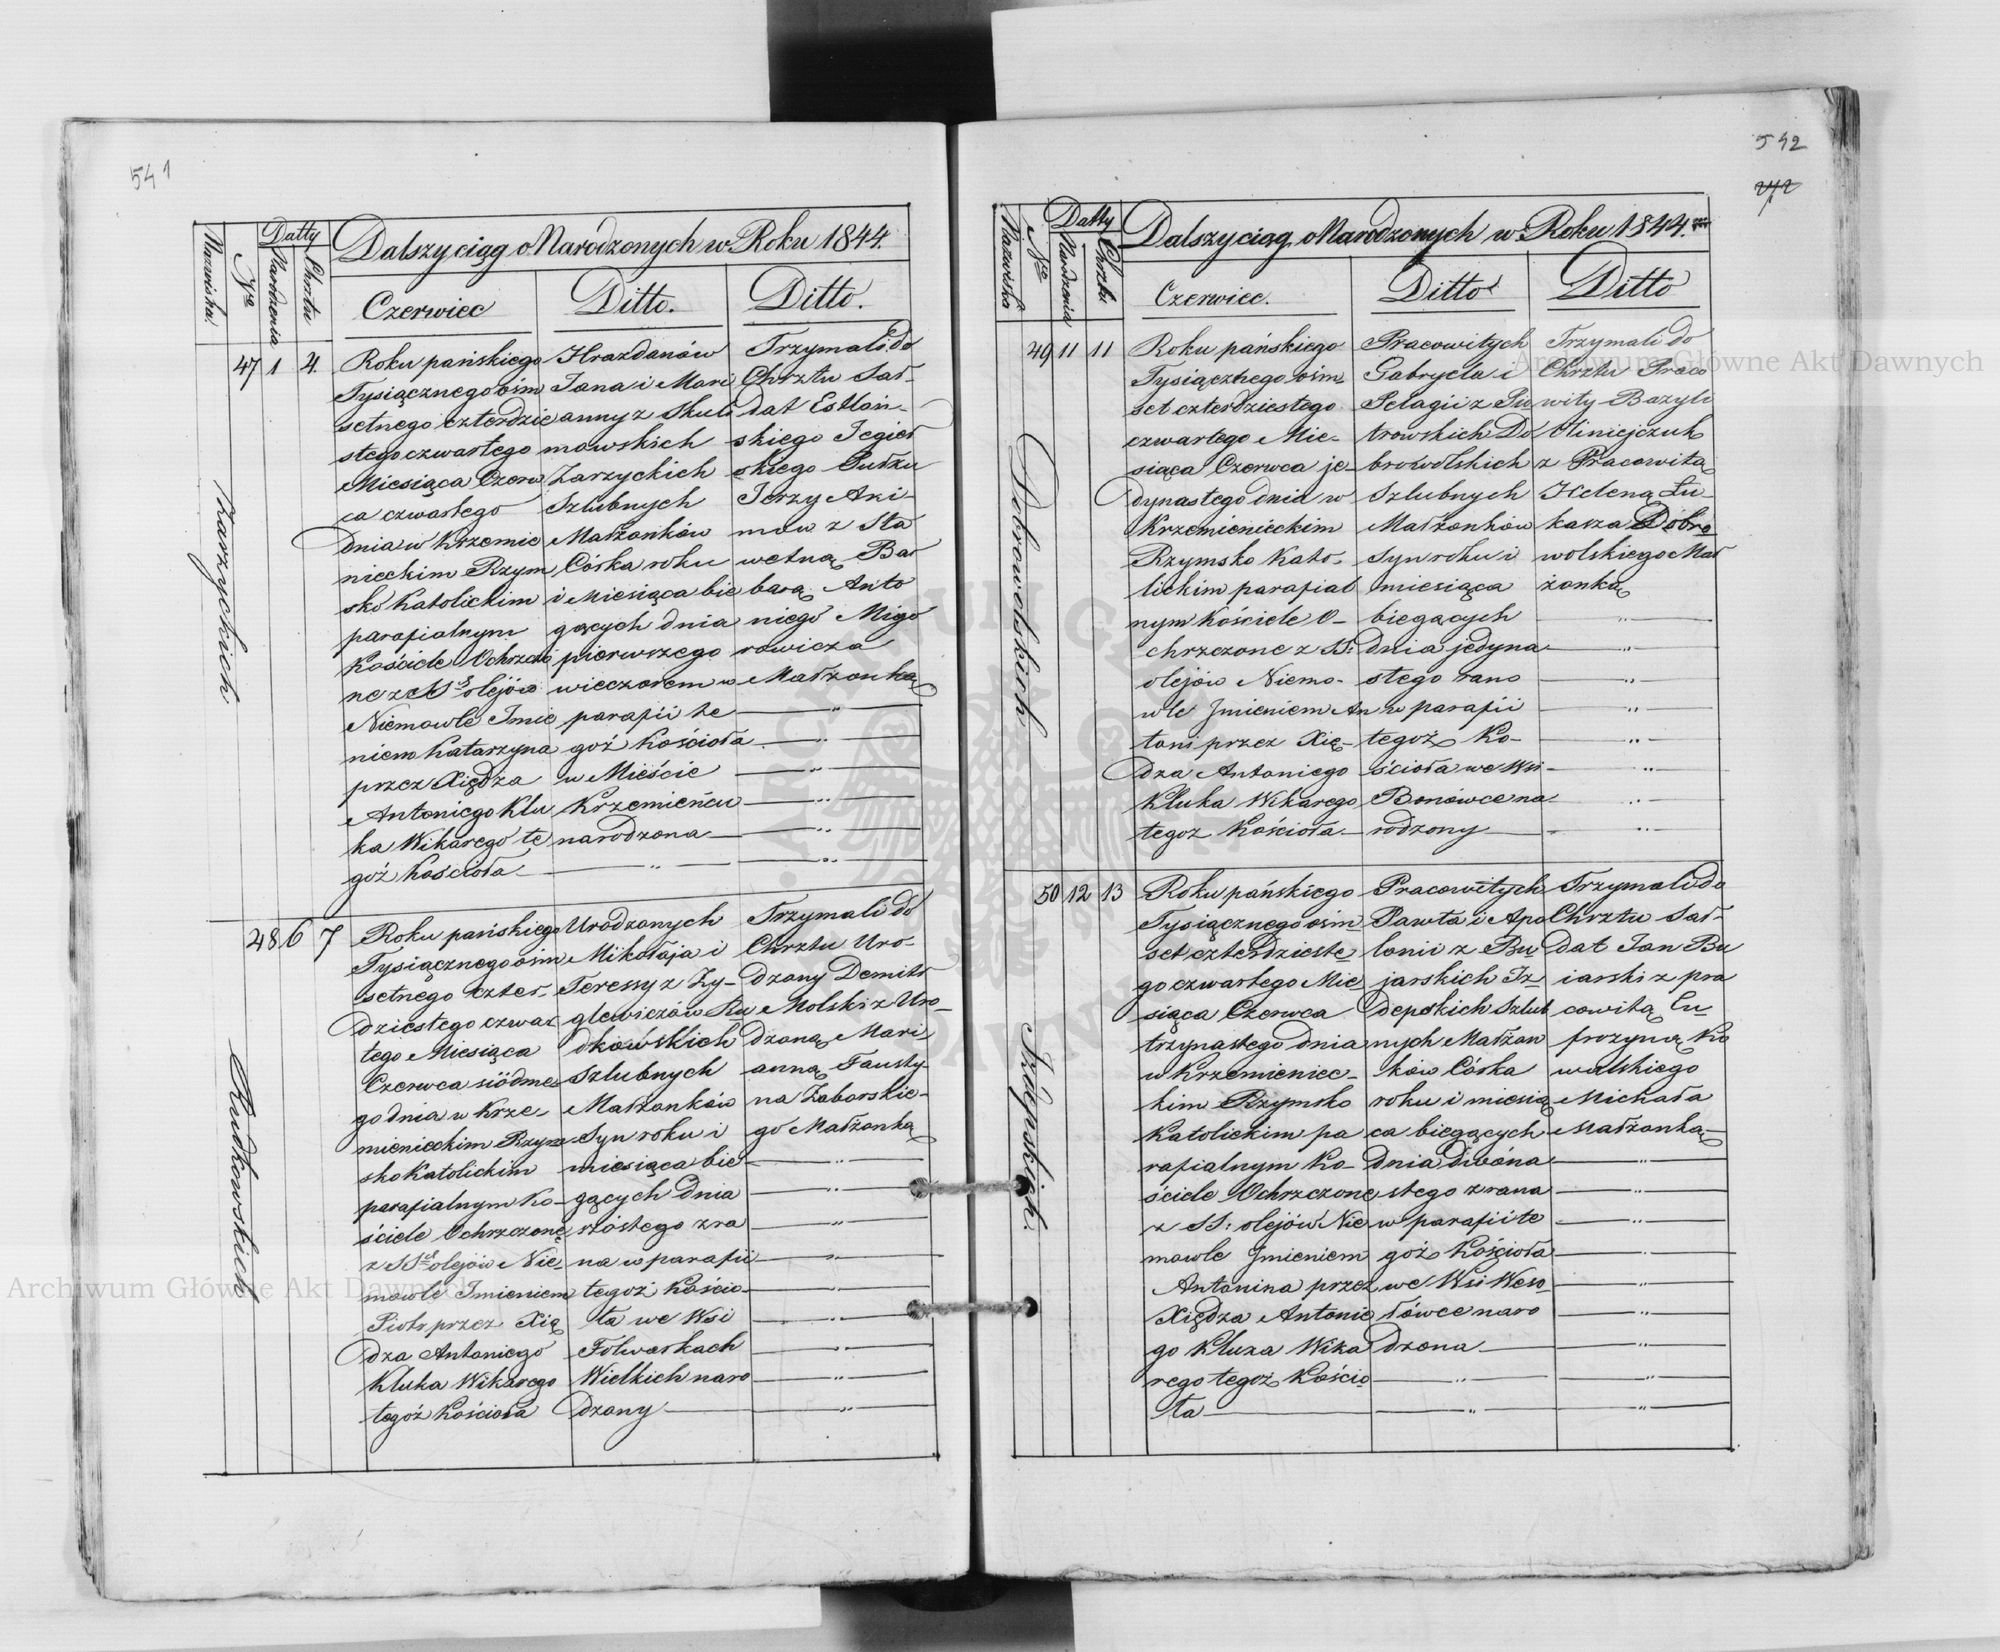 541
Dalszy ciąg o Narodzonych w Roku 1844.
Nazwiska.
Nro
Datty
Narodzenia
Chrztu
Czerwiec
Ditto.
Ditto.
Zarzyckich
47 1 4.
Roku pańskiego
Tysiącznego ośm
setnego czterdzie
stego czwartego
Miesiąca Czerw
ca czwartego
dnia w Krzemie
nieckim Rzym
sko Katolickim
parafialnym
Kościele Ochrzczo
ne z SS olejów
Niemowle Imie
niem Katarzyna
przez Xiędza
Antoniego Klu
ka Wikarego te
goż Kościoła
Hrazdanów
Jana i Mari
anny z Skuli
mowskich
Zarzyckich
Szlubnych
Małżonków
Córka roku
i Miesiąca bie
gących dnia
pierwszego
wieczorem w
parafii te
goż Kościoła
w Mieście
Krzemieńcu
narodzona
Trzymali do
Chrztu Sał-
dat Estlań-
skiego Jegier
skiego Pułku
Jerzy Aki-
mow z Sta
wetną Bar
barą Anto
niego Migo
rowicza
Małżonką
Rudkowskich
48 6 7
Roku pańskiego
Tysiącznego ośm
setnego czter-
dziestego czwar
tego Miesiąca
Czerwca siódme-
go dnia w Krze-
mienieckim Rzym
sko Katolickim
parafialnym Ko-
ściele Ochrzczone
z SS olejów Nie-
mowle Imieniem
Piotr przez Xię
dza Antoniego
Kluka Wikarego
tegoż Kościoła
Urodzonych
Mikołaja i
Teressy z Zy-
glewiczów Ru
dkowskich
Szlubnych
Małżonków
Syn roku i
miesiąca bie-
gących dnia
szóstego zra
na w parafii
tegoż Kościo-
ła we Wsi
Folwarkach
Wielkich naro
dzony
Trzymali do
Chrztu Uro-
dzony Demitr
Molski z Uro-
dzoną Mari
anną Fausty-
na Zaborskie-
go Małżonką
542
272
Dalszy ciąg o Narodzonych w Roku 1844.
Nazwiska
Nro
Datty
Narodzenia
Chrztu
Czerwiec.
Ditto
Ditto
Dobrowolskich
49 11 11
Roku pańskiego
Tysiącznego ośm-
set czterdziestego
czwartego Mie-
siąca Czerwca je-
dynastego dnia w
Krzemienieckim
Rzymsko Kato-
lickim parafial
nym Kościele O-
chrzczone z SS:
olejów Niemo-
wle Imieniem An
toni przez Xię-
dza Antoniego
Kluka Wikarego
tegoż Kościoła
Pracowitych
Gabryela i
Pelagii z Pio
trowskich Do
browolskich
Szlubnych
Małżonków
Syn roku i
miesiąca
biegących
dnia jedyna-
stego rano
w parafii
tegoż Ko-
ścioła we Wsi
Bonówce na
rodzony
Trzymali do
Chrztu Praco
wity Bazyli
Oliniejczuk
z Pracowitą
Heleną Łu-
kasza Dobro
wolskiego Mał
żonką
Izdepskich.
50 12 13
Roku pańskiego
Tysiącznego ośm
set czterdzieste
go czwartego Mie
siąca Czerwca
trzynastego dnia
w Krzemieniec-
kim Rzymsko
Katolickim pa
rafialnym Ko-
ściele Ochrzczone
z SS: olejów Nie
mowle Imieniem
Antonina przez
Xiędza Antonie
go Kluka Wika
rego tegoż Kościo
ła
Pracowitych
Pawła i Apo
lonii z Bu
jarskich Iz
depskich Szlub
nych Małżon
ków Córka
roku i miesią
ca biegących
dnia dwóna
stego zrana
w parafii te
goż Kościoła
we Wsi Weso-
łówce naro
dzona
Trzymali do
Chrztu Sał-
dat Jan Bu
iarski z pra
cowitą Eu-
frozyną Ko
walskiego
Michała
Małżonką
Archiwum Główne Akt Dawnych
Archiwum Główne Akt Dawnych